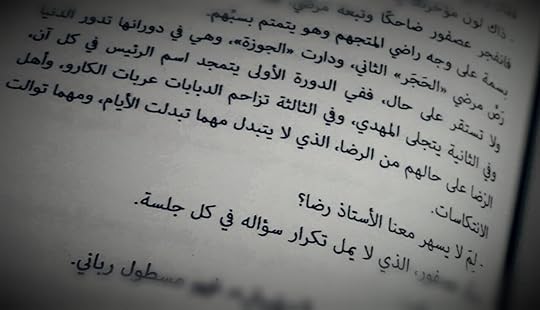 ذاك لون مؤخر
فانفجر عصفور ضاحكًا وتبعه مرضي
بسمة على وجه راضي المتجهم وهو يتمتم بسبِّهم.
رصَّ مرضي «الحَجَر» الثاني، ودارت «الجوزة»، وهي في دورانها تدور الدنيا
ولا تستقر على حال، ففي الدورة الأولى يتمجد اسم الرئيس في كل آن،
وفي الثانية يتجلى المهدي، وفي الثالثة تزاحم الدبابات عربات الكارو، وأهل
الرضا على حالهم من الرضا، الذي لا يتبدل مهما تبدلت الأيام، ومهما توالت
الانتكاسات.
- لِمَ لا يسهر معنا الأستاذ رضا؟
صفور، الذي لا يمل تكرار سؤاله في كل جلسة.
فهو مسطول رباني.